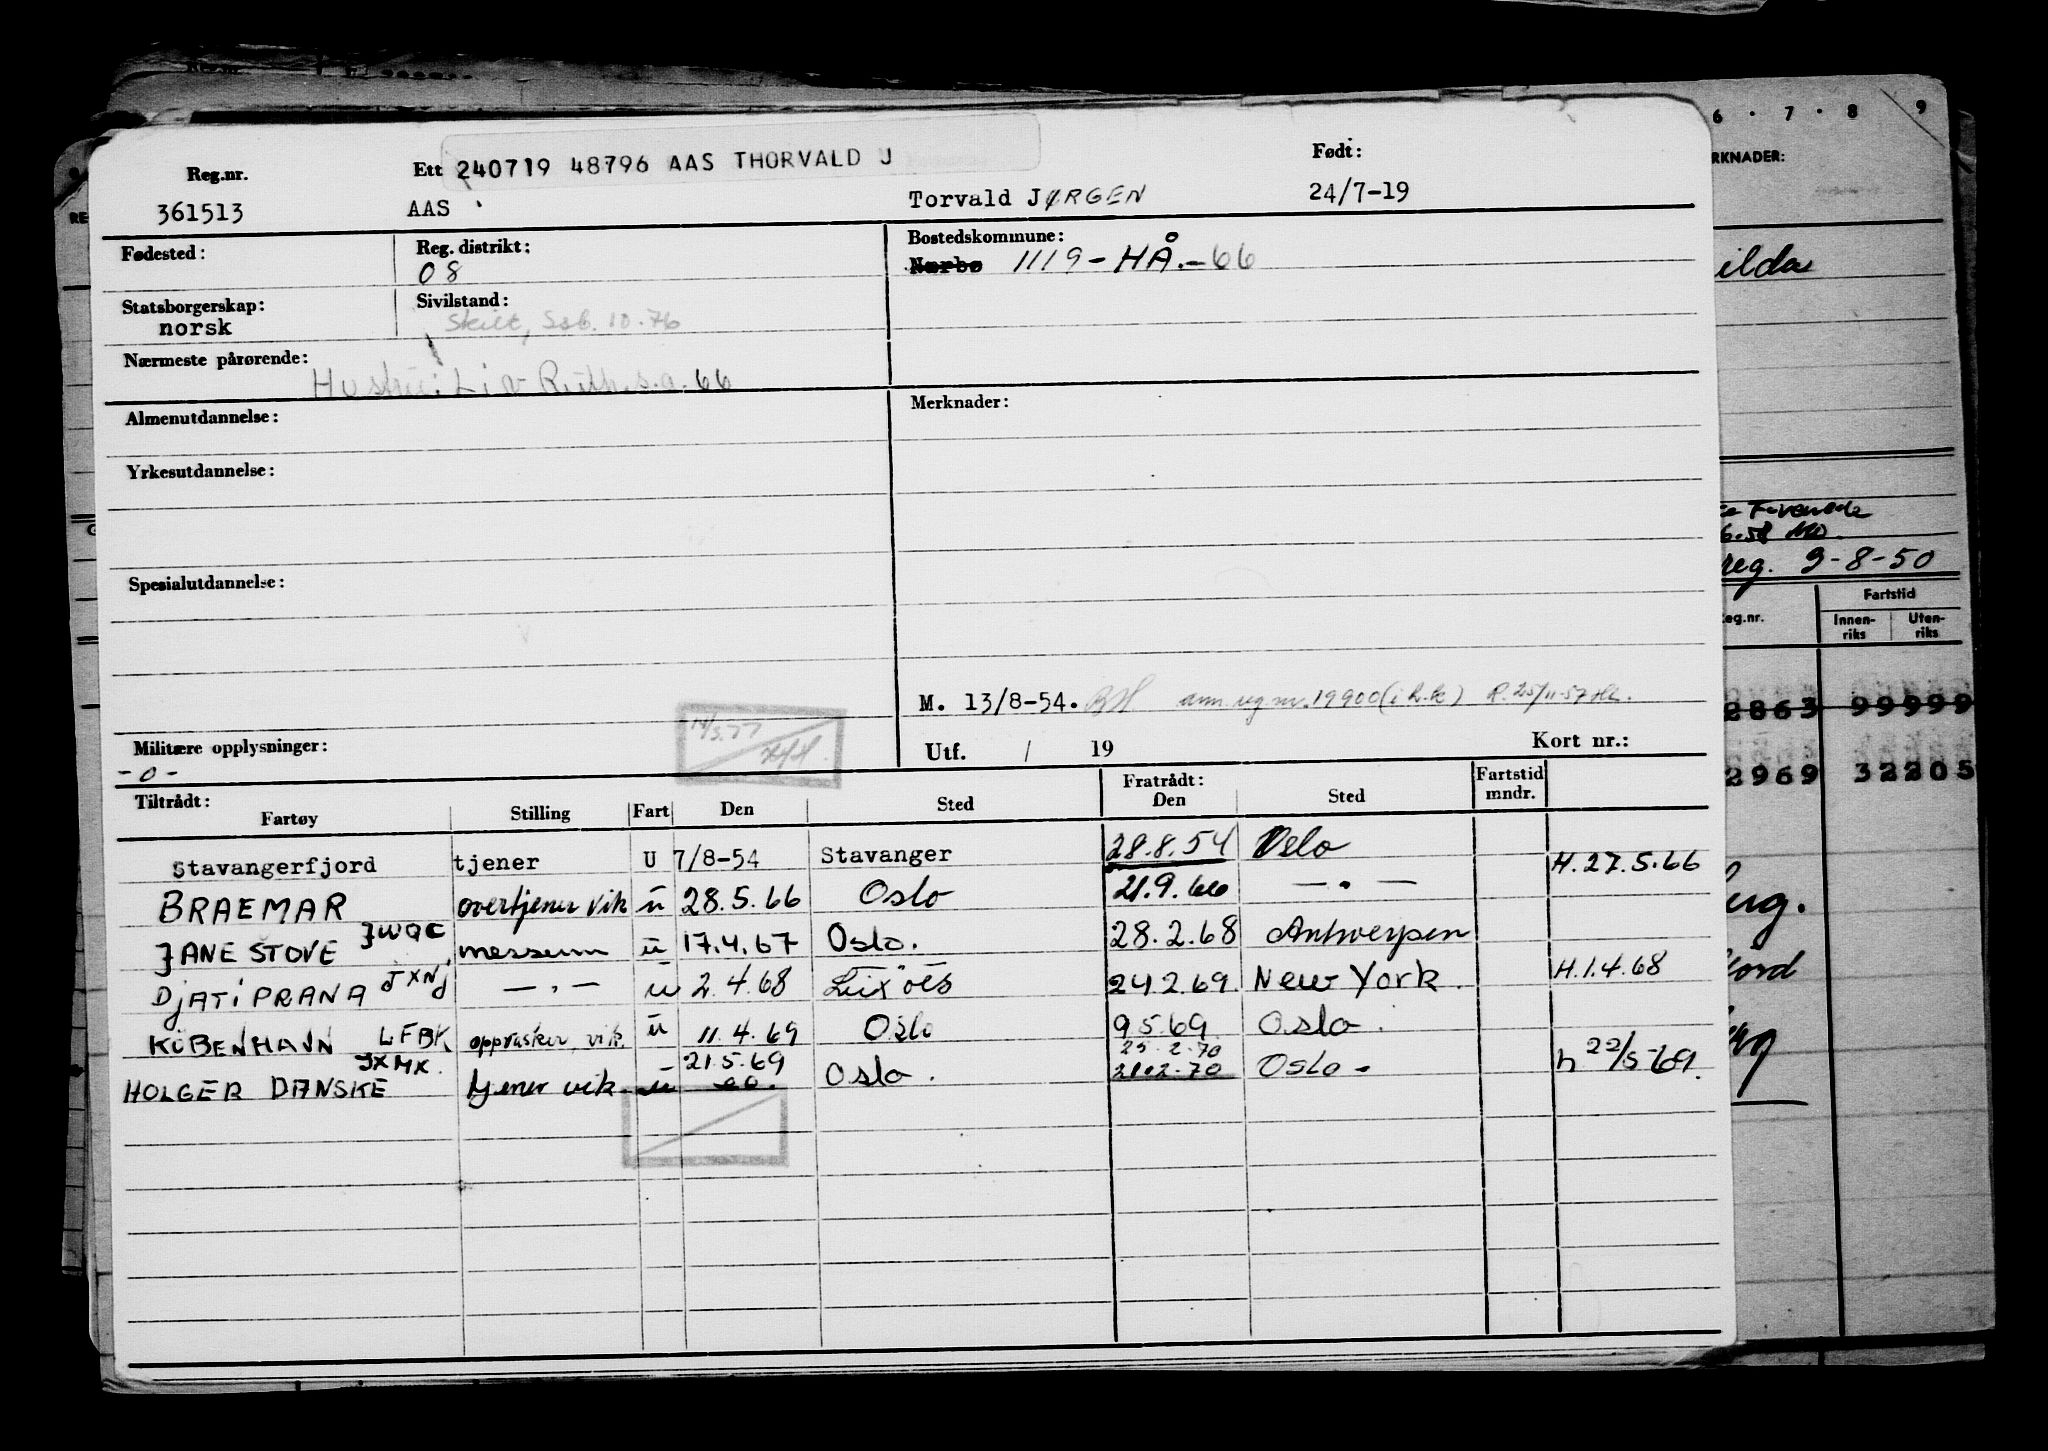 6 · 7 · 8 9
Reg.nr. Ett 240719 48796 AAS THORVALD J Født:
361513 AAS Torvald JØRGEN 24/7-19
RKNADER:
Fødested: Reg. distrikt: Bostedskommune:
08 Nærbø 1119-HÅ.-66
ilda
Statsborgerskap: Sivilstand:
norsk Skilt, 10.76
Nærmeste pårørende:
Hustru: Liv Ruth s.a. 66
Almenutdannelse: Merknader:
Yrkesutdannelse:
6.58
reg. 9-8-50
Spesialutdannelse:
Fartstid
eg.nr. Innen-riks Uten-riks
M. 13/8-54. ann. reg.nr. 19900 (i h.k) R. 25/11-57
2863 99999
14/3.77
Militære opplysninger: Utf. / 19 Kort nr.:
-0-
2969 32205
Tiltrådt: Fratrådt: Fartstid mndr.
Fartøy Stilling Fart Den Sted Den Sted
Stavangerfjord tjener U 7/8-54 Stavanger 28.8.54 Oslo H.27.5.66
BRAEMAR overtjener vik u 28.5.66 Oslo 21.9.66 — " —
JANE STOVE JWQC messem u 17.4.67 Oslo. 28.2.68 Antwerpen
DjATiPRANA JXNJ — " — u 2.4.68 Lixões 24 2.69. New York. H.1.4.68
KÖBENHAVN LFBK oppvasker vik. u 11.4.69 Oslo 9 5.69 Oslo.
HOLGER DANSKE JXMK. tjener vik. u 21.5.69 Oslo. 25.2.70 21.2.70 Oslo. h 22/5-69.